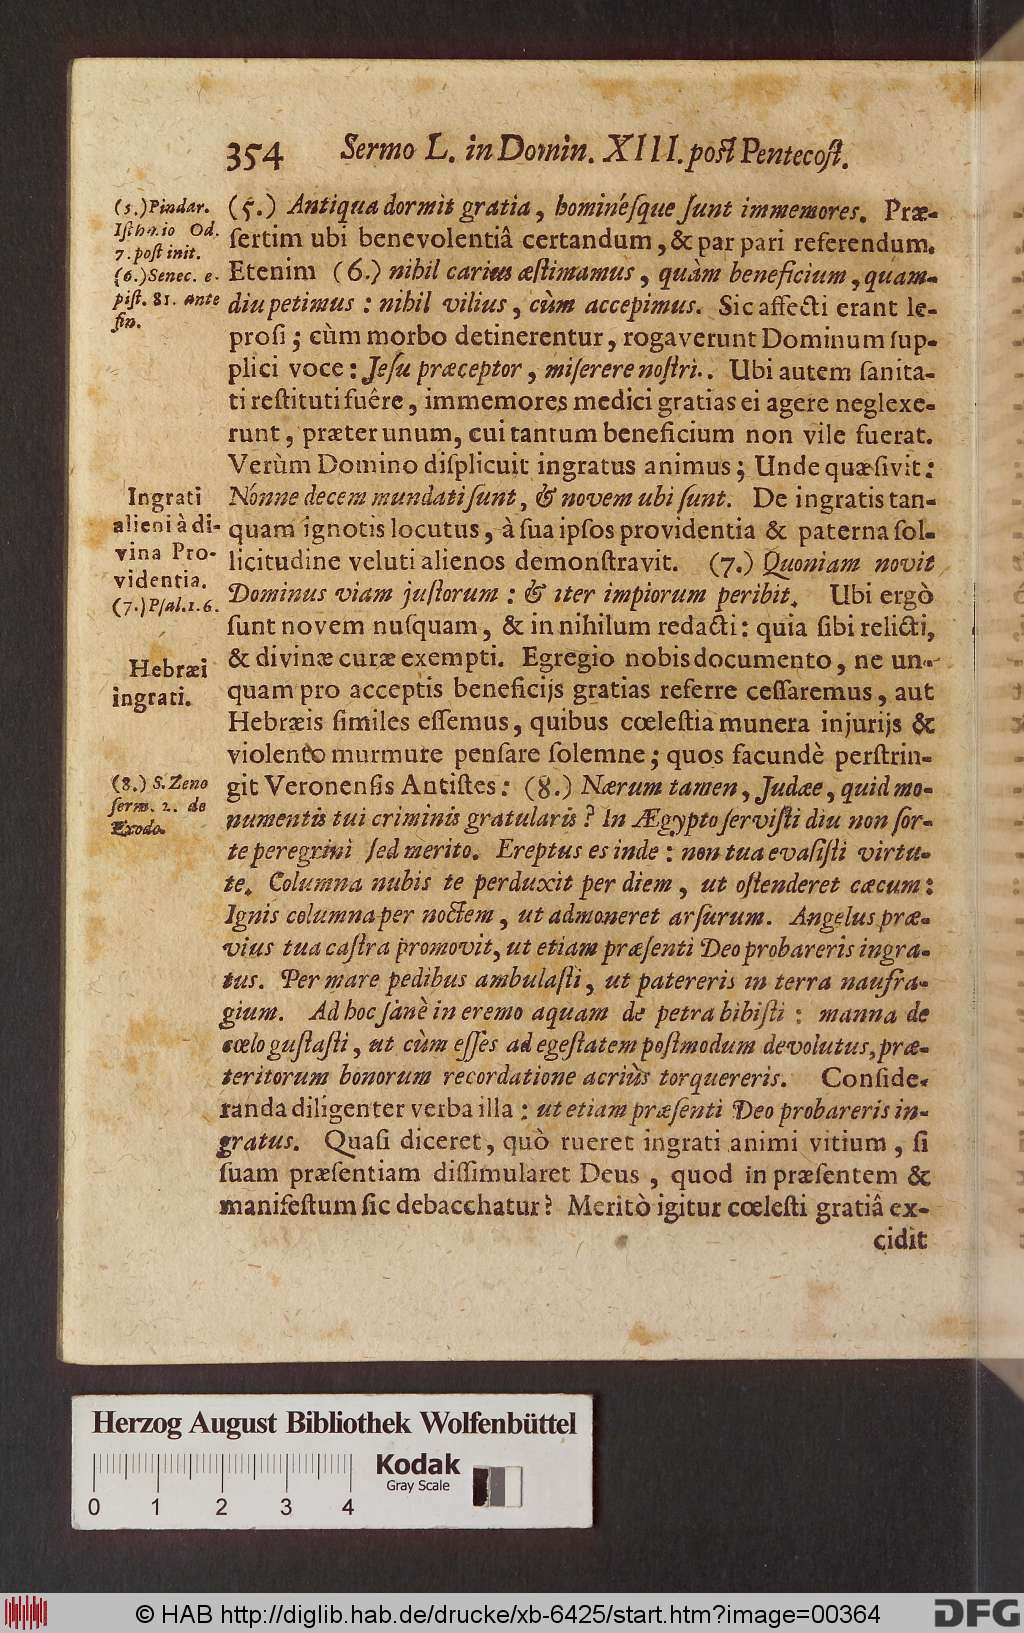 354 Sermo L. in Domin. XIII. post Pentecost.
(5.) Pindar.
Isthm.io Od.
7. post init.
(6.) Senec. e-
pist. 81. ante
fin.
(5.) Antiqua dormit gratia, hominésque sunt immemores. Præ-
sertim ubi benevolentiâ certandum, & par pari referendum.
Etenim (6.) nihil carius æstimamus, quàm beneficium, quam-
diu petimus: nihil vilius, cùm accepimus. Sic affecti erant le-
prosi; cùm morbo detinerentur, rogaverunt Dominum sup-
plici voce: Jesu præceptor, miserere nostri.. Ubi autem sanita-
ti restituti fuére, immemores medici gratias ei agere neglexe-
runt, præter unum, cui tantum beneficium non vile fuerat.
Verùm Domino displicuit ingratus animus; Unde quæsivit:
Ingrati
alieni à di-
vina Pro-
videntia.
(7.) Psal. 1. 6.
Nónne decem mundati sunt, & novem ubi sunt. De ingratis tan-
quam ignotis locutus, à sua ipsos providentia & paterna sol-
licitudine veluti alienos demonstravit. (7.) Quoniam novit
Dominus viam justorum: & iter impiorum peribit. Ubi ergò
sunt novem nusquam, & in nihilum redacti: quia sibi relicti,
Hebræi
ingrati.
& divinæ curæ exempti. Egregio nobis documento, ne un-
quam pro acceptis beneficijs gratias referre cessaremus, aut
Hebræis similes essemus, quibus cœlestia munera injurijs &
violento murmure pensare solemne; quos facundè perstrin-
(8.) S. Zeno
serm. 2. de
Exodo.
git Veronensis Antistes: (8.) Nærum tamen, Judæe, quid mo-
numentis tui criminis gratularis? In Ægypto servisti diu non sor-
te peregrini sed merito. Ereptus es inde: non tua evasisti virtu-
te. Columna nubis te perduxit per diem, ut ostenderet cæcum:
Ignis columna per noctem, ut admoneret arsurum. Angelus præ-
vius tua castra promovit, ut etiam præsenti Deo probareris ingra-
tus. Per mare pedibus ambulasti, ut patereris in terra naufra-
gium. Ad hoc sanè in eremo aquam de petra bibisti: manna de
cœlo gustasti, ut cùm esses ad egestatem postmodum devolutus, præ-
teritorum bonorum recordatione acriùs torquereris. Conside-
randa diligenter verba illa: ut etiam præsenti Deo probareris in-
gratus. Quasi diceret, quò rueret ingrati animi vitium, si
suam præsentiam dissimularet Deus, quod in præsentem &
manifestum sic debacchatur? Meritò igitur cœlesti gratiâ ex-
cidit
Herzog August Bibliothek Wolfenbüttel
Kodak
Gray Scale
0 1 2 3 4
© HAB http://diglib.hab.de/drucke/xb-6425/start.htm?image=00364
DFG